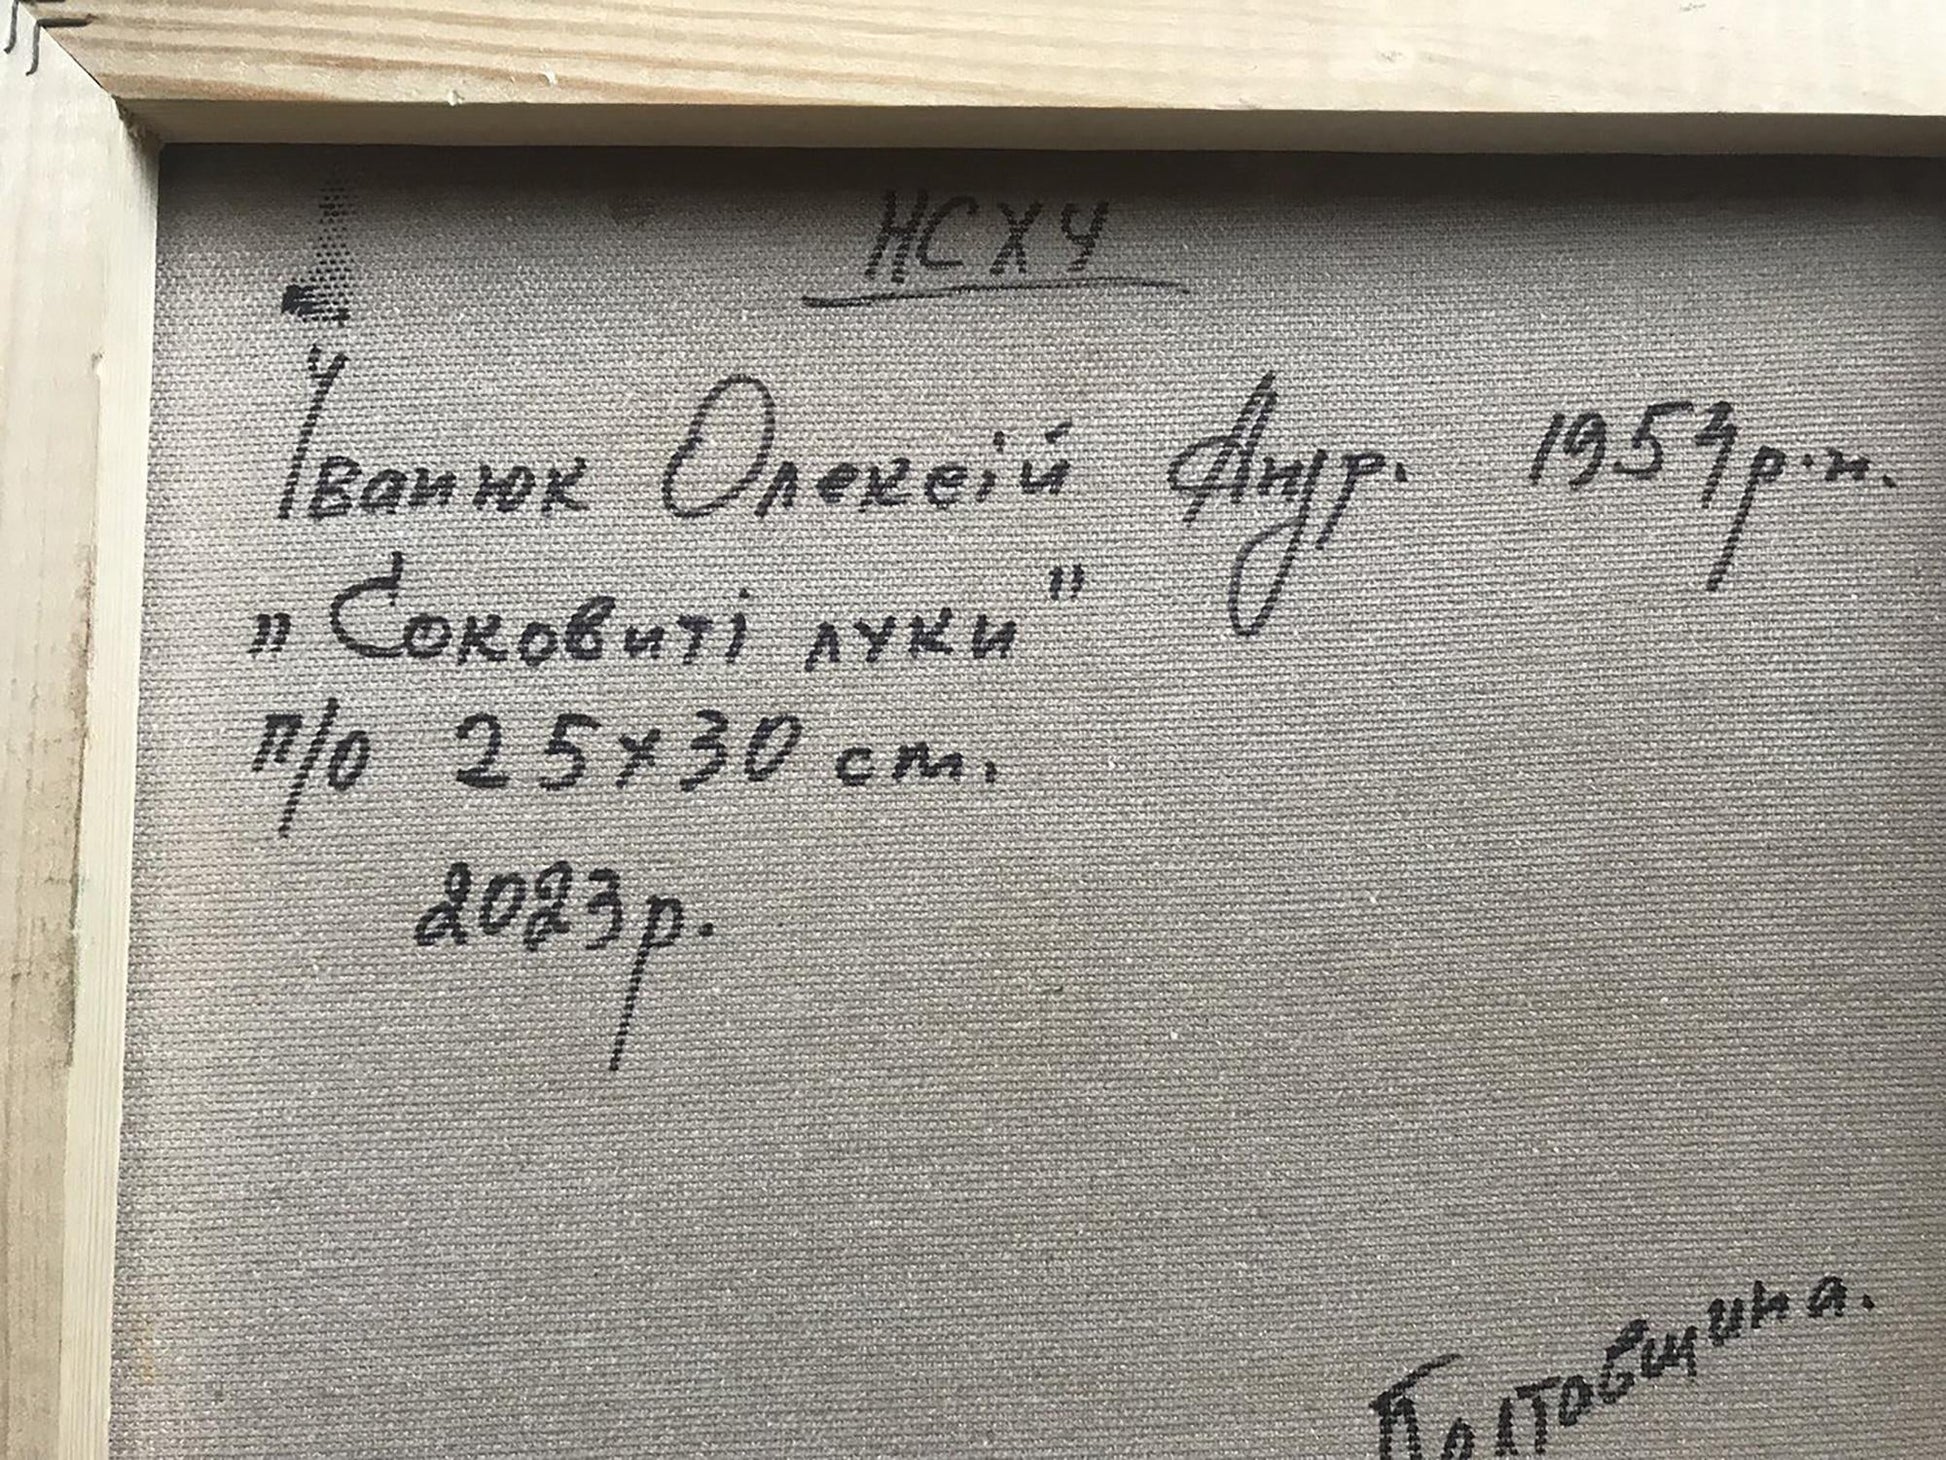 НСХУ
Іванюк Олексій Андр. 1954 р.н.
„Соковиті луки"
п/о 25х30 ст.
2023р.
Полтавщина.